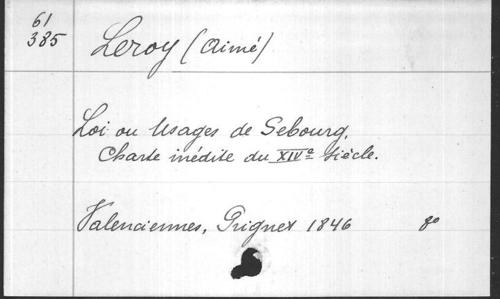 61
385
Leroy (Aimé)
Loi ou Usages de Sebourg.
Charte inédite du XIVe Siècle.
Valenciennes, Prignet 1846 8o